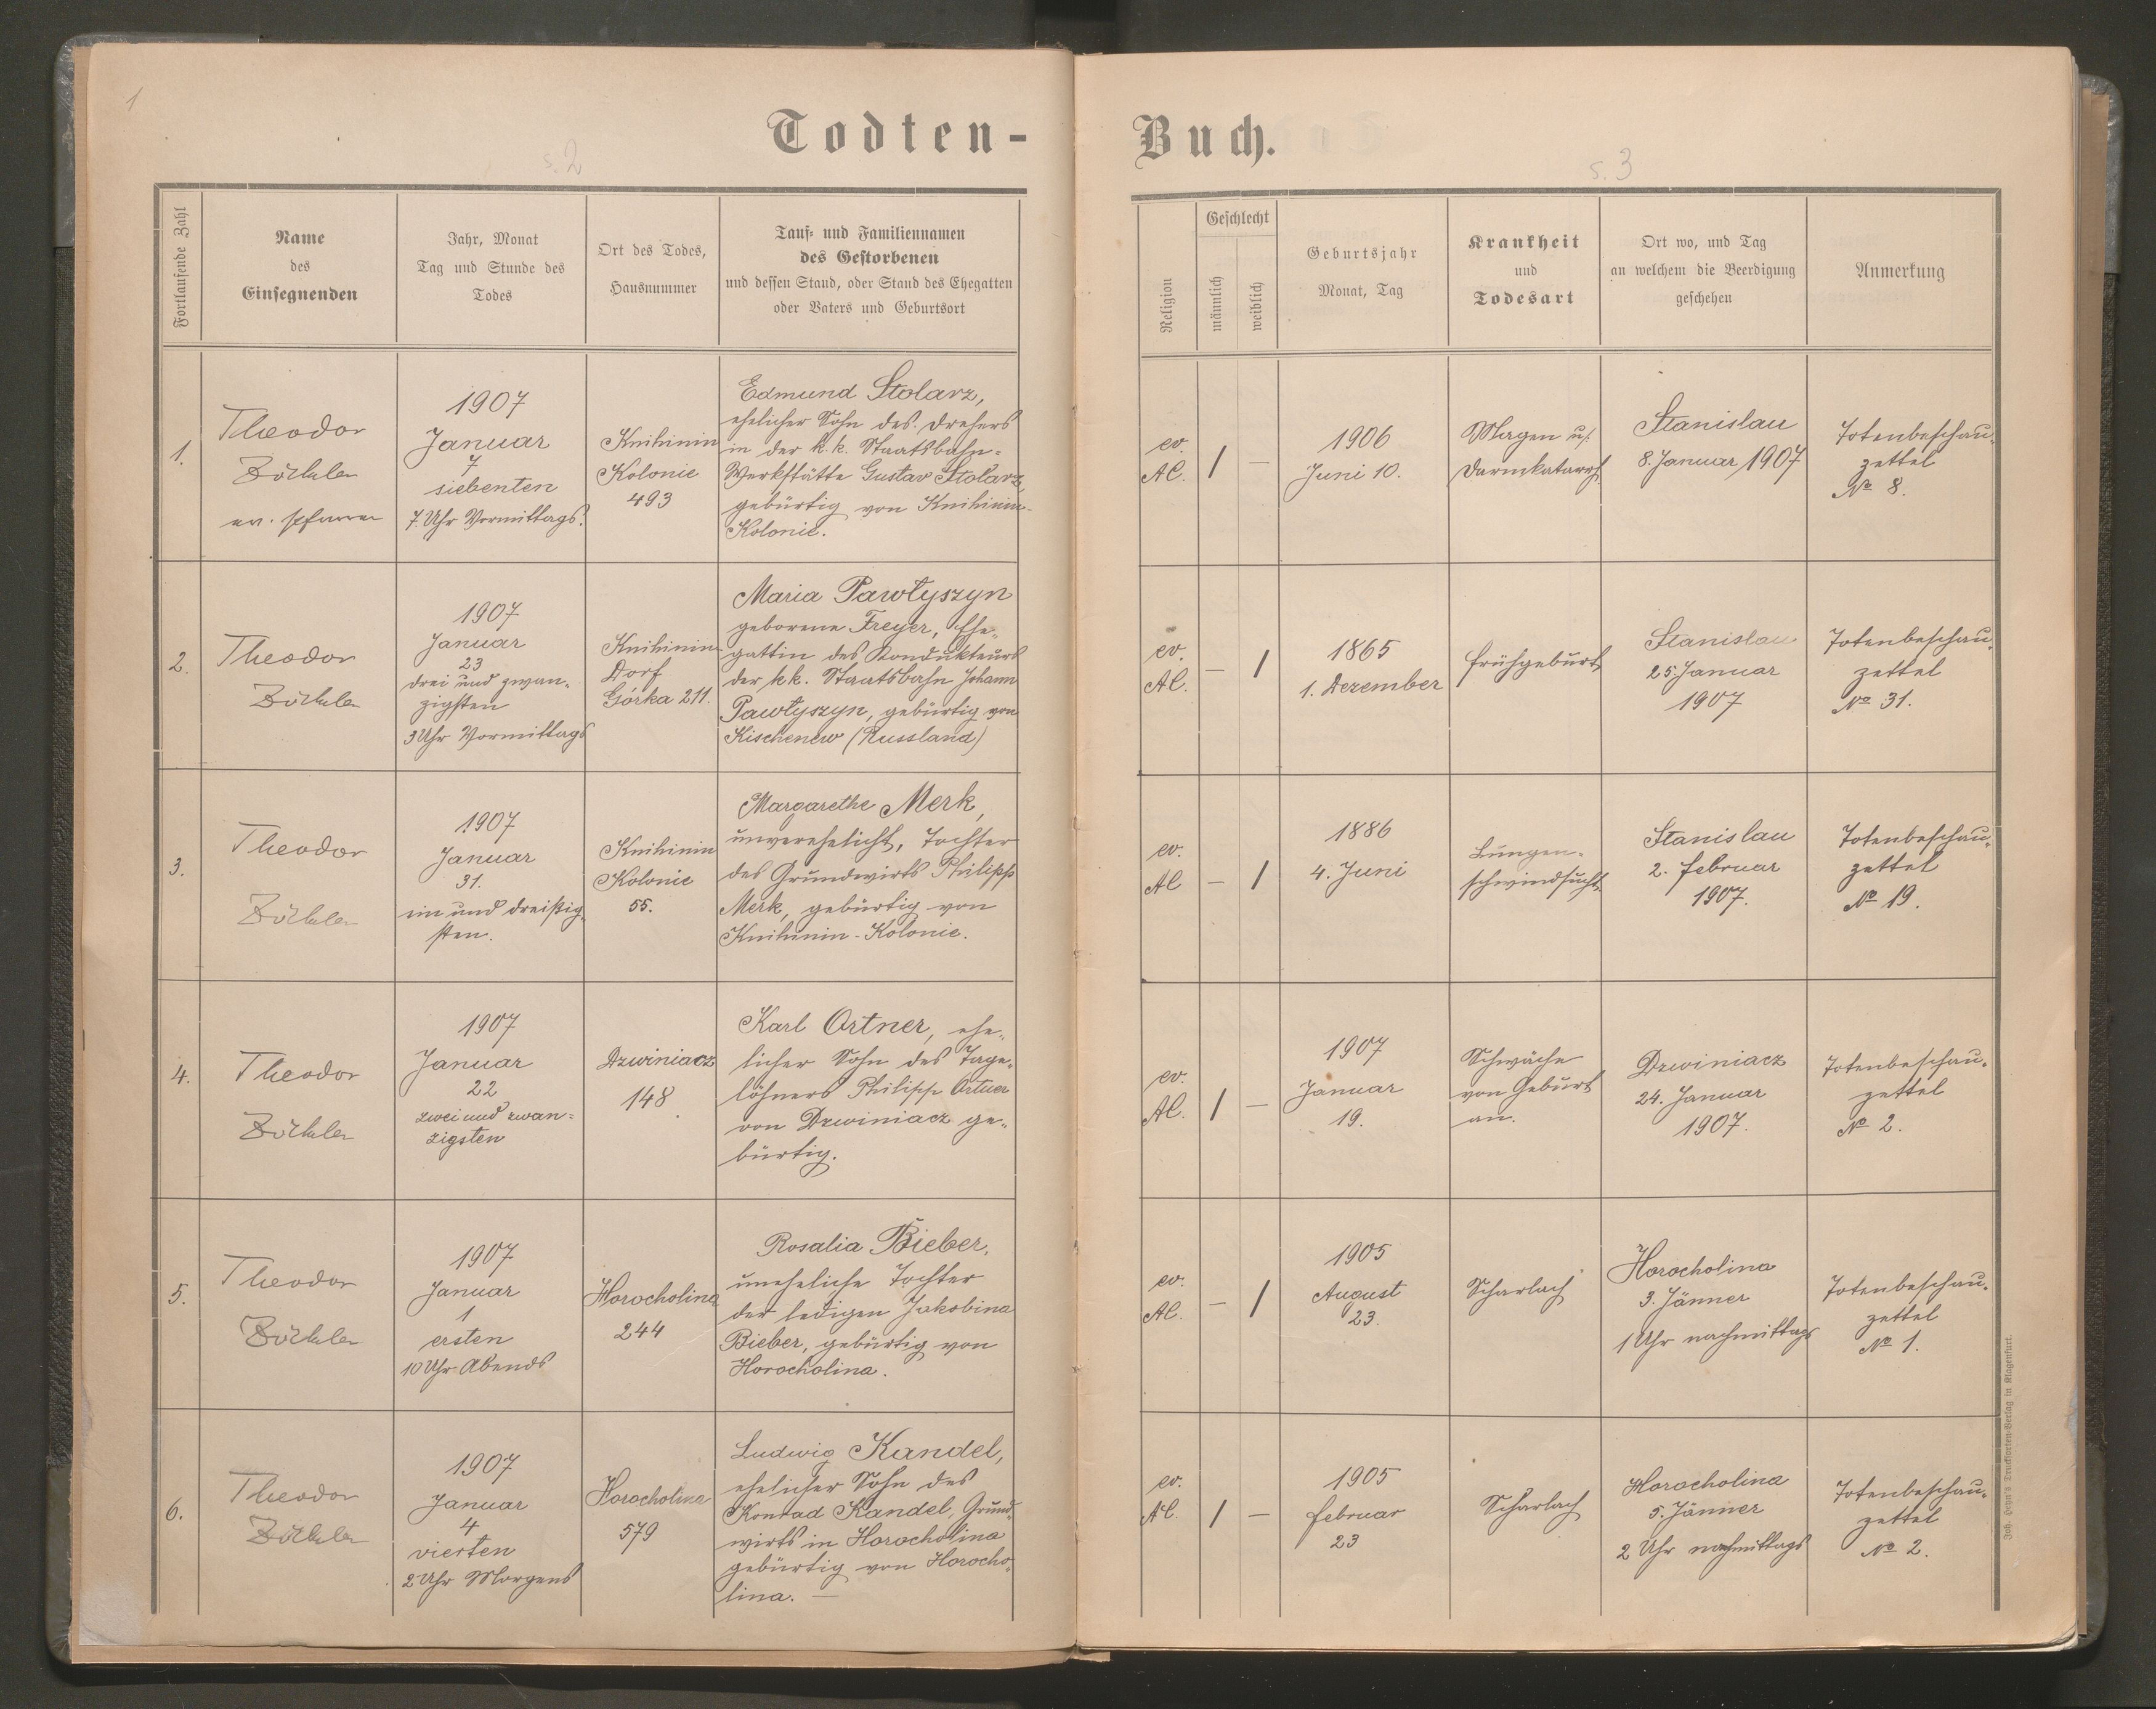 1
Todten-
Buch.
s. 2
s. 3
Fortlaufende Zahl
Name
des
Einsegnenden
Jahr, Monat
Tag und Stunde des
Todes
Ort des Todes,
Hausnummer
Tauf- und Familiennamen
des Gestorbenen
und dessen Stand, oder Stand des Ehegatten
oder Vaters und Geburtsort
Religion
Geschlecht
männlich
weiblich
Geburtsjahr
Monat, Tag
Krankheit
und
Todesart
Ort wo, und Tag
an welchem die Beerdigung
geschehen
Anmerkung
1.
Theodor
Zöckler
ev. Pfarrer
1907
Januar
7
siebenten
7. Uhr Vormittags.
Knihinin
Kolonie
493
Edmund Stolarz,
ehelicher Sohn des Drehers
in der k. k. Staatsbahn-
Werkstätte Gustav Stolarz,
gebürtig von Knihinin-
Kolonie.
ev.
AC.
1
—
1906
Juni 10.
Magen u.
Darmkatarrh.
Stanislau
8. Januar 1907
Totenbeschau-
zettel
No 8.
2.
Theodor
Zöckler
1907
Januar
23
drei und zwan-
zigsten
3 Uhr Vormittags
Knihinin
Dorf
Górka 211.
Maria Pawłyszyn
geborene Freyer, Ehe-
gattin des Kondukteurs
der kk. Staatsbahn Johann
Pawłyszyn, gebürtig von
Kischenew (Russland)
ev.
AC.
—
1
1865
1. Dezember
Frühgeburt
Stanislau
25. Januar
1907
Totenbeschau-
zettel
No 31.
3.
Theodor
Zöckler
1907
Januar
31.
ein und dreißig-
sten.
Knihinin
Kolonie
55.
Margarethe Merk,
unverehelicht, Tochter
des Grundwirts Philipp
Merk, gebürtig von
Knihinin-Kolonie.
ev.
AC
—
1
1886
4. Juni
Lungen-
schwindsucht
Stanislau
2. Februar
1907.
Totenbeschau-
zettel
No 19.
4.
Theodor
Zöckler
1907
Januar
22
zwei und zwan-
zigsten
Dzwiniacz
148
Karl Ortner, ehe-
licher Sohn des Tage-
löhners Philipp Ortner
von Dzwiniacz ge-
bürtig.
ev.
AC.
1
—
1907
Januar
19.
Schwäche
von Geburt
an.
Dzwiniacz
24. Januar
1907.
Totenbeschau-
zettel
No 2.
5.
Theodor
Zöckler
1907
Januar
1
ersten
10 Uhr Abends
Horocholina
244
Rosalia Bieber,
uneheliche Tochter
der ledigen Jakobina
Bieber, gebürtig von
Horocholina.
ev.
AC.
—
1
1905
August
23.
Scharlach
Horocholina
3. Jänner
1 Uhr nachmittags
Totenbeschau-
zettel
No 1.
6.
Theodor
Zöckler
1907
Januar
4
vierten
2 Uhr Morgens
Horocholina
579
Ludwig Kandel,
ehelicher Sohn des
Konrad Kandel, Grund-
wirts in Horocholina
gebürtig von Horocho-
lina. —
ev.
AC.
1
—
1905
Februar
23
Scharlach
Horocholina
5. Jänner
2 Uhr nachmittags
Totenbeschau-
zettel
No 2.
Joh. Heyn's Drucksorten-Verlag in Klagenfurt.